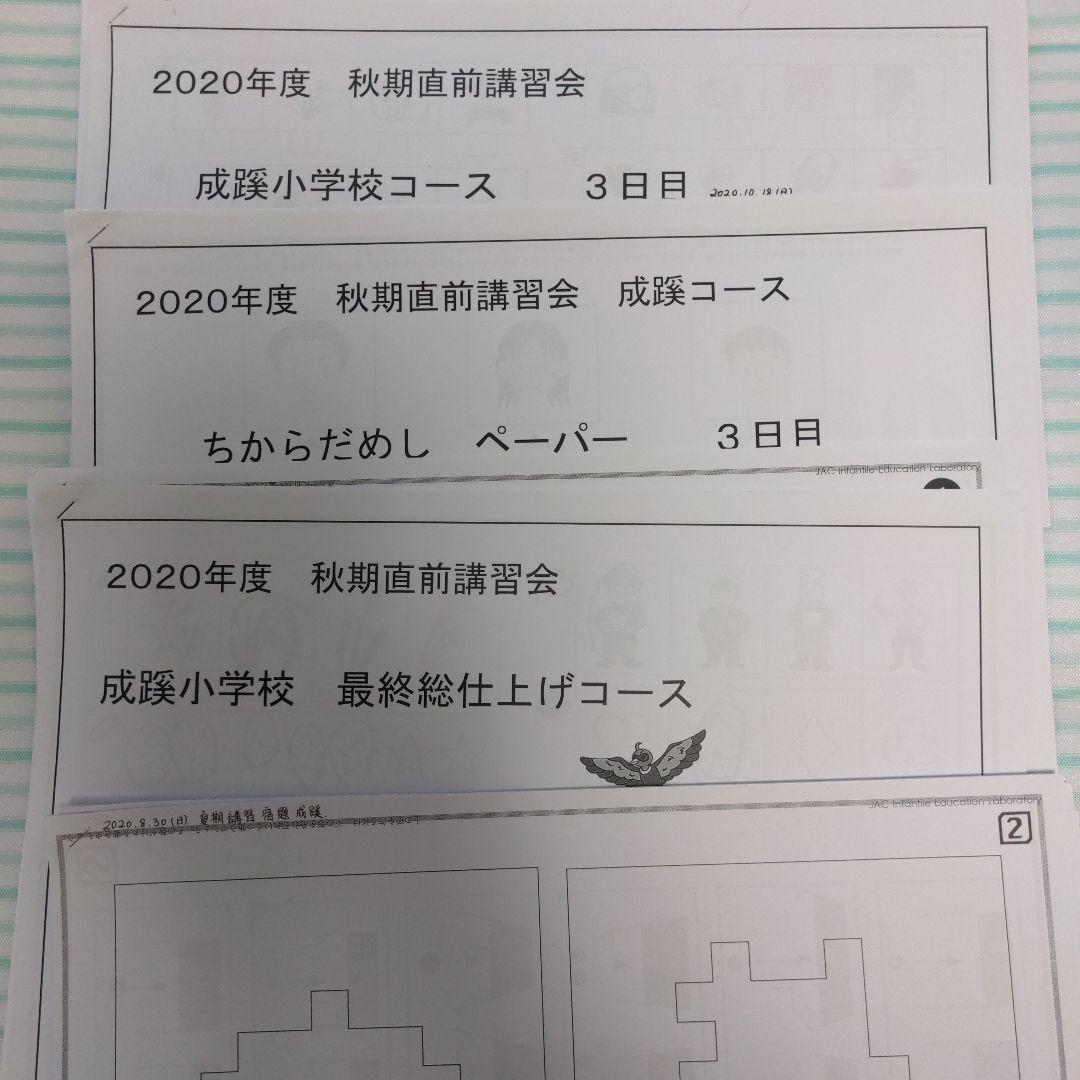 2020年度　秋期直前講習会
成蹊小学校コース　　3日目　2020.10.18(月)
2020年度　秋期直前講習会　成蹊コース
ちからだめし　ペーパー　　3日目
JAC Infantile Education Laboratory
2020年度　秋期直前講習会
成蹊小学校　最終総仕上げコース
2020.8.30(日) 夏期講習 宿題 成蹊.
JAC Infantile Education Laboratory
2